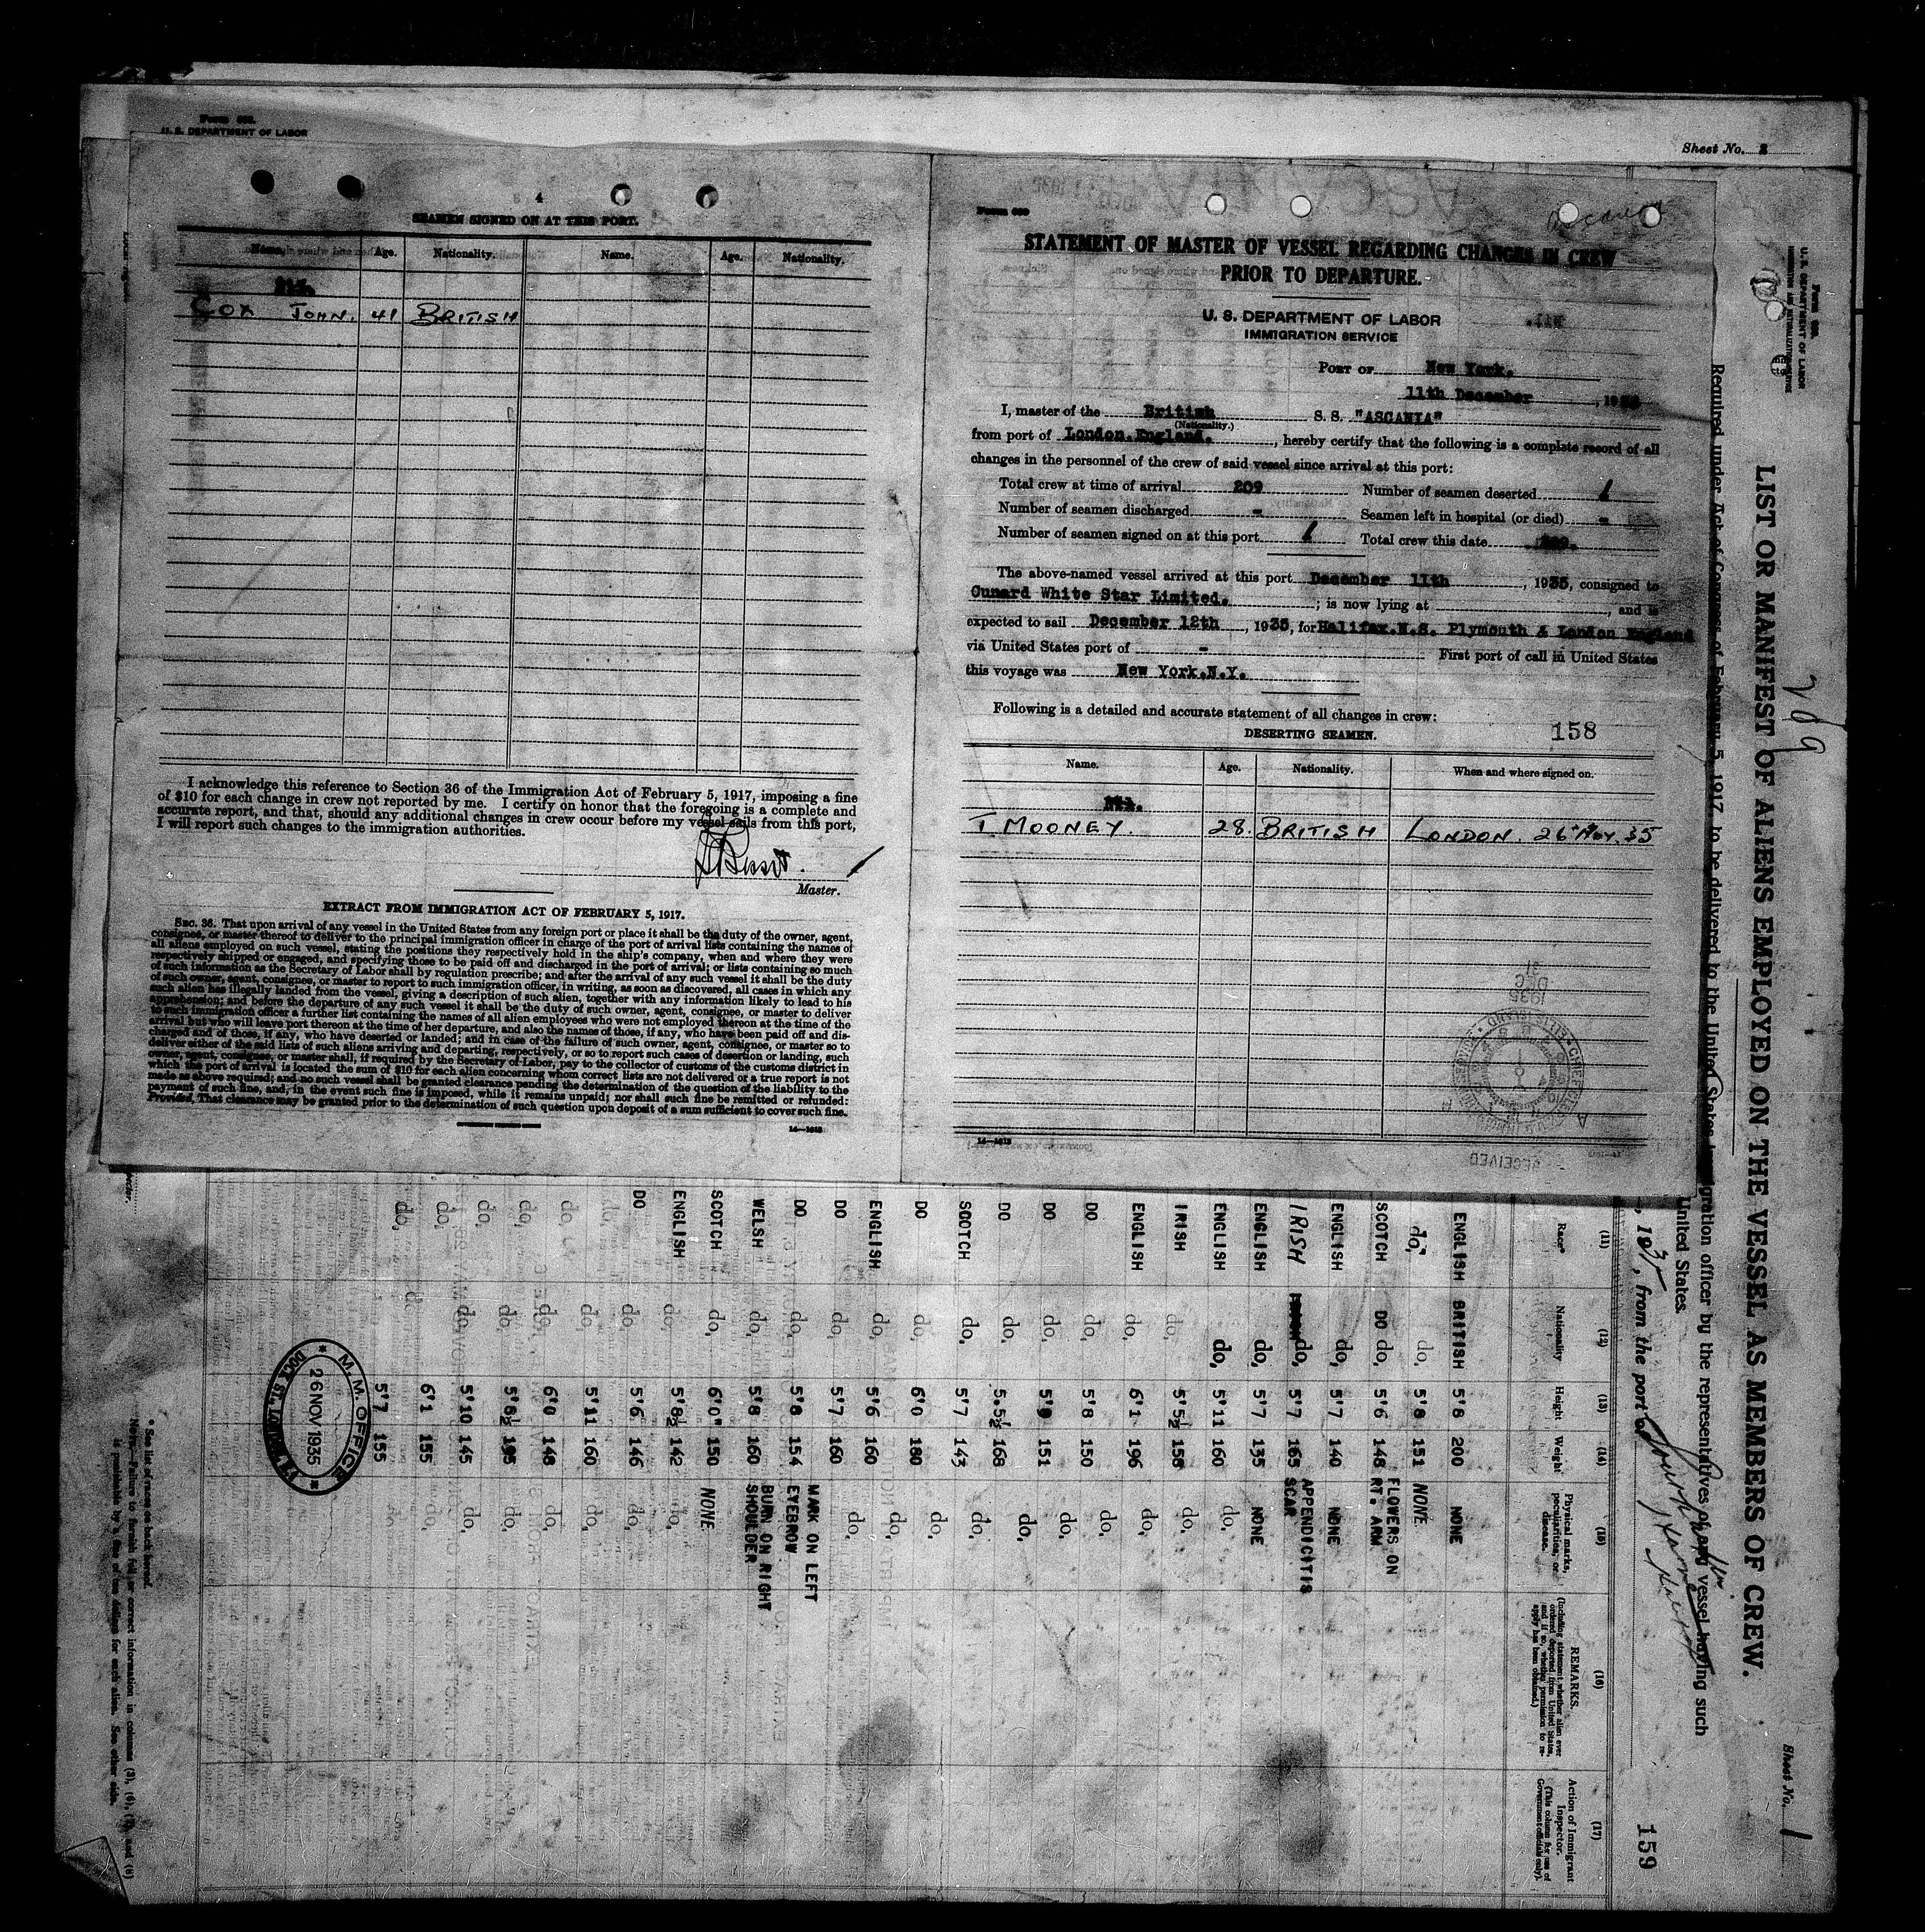 Form 689.
U. S. DEPARTMENT OF LABOR
Sheet No. 2
4
SEAMEN SIGNED ON AT THIS PORT.
Name. Age. Nationality. Name. Age. Nationality.
COX JOHN. 41 BRITISH
I acknowledge this reference to Section 36 of the Immigration Act of February 5, 1917, imposing a fine
of $10 for each change in crew not reported by me. I certify on honor that the foregoing is a complete and
accurate report, and that, should any additional changes in crew occur before my vessel sails from this port,
I will report such changes to the immigration authorities.
Master.
EXTRACT FROM IMMIGRATION ACT OF FEBRUARY 5, 1917.
SEC. 36. That upon arrival of any vessel in the United States from any foreign port or place it shall be the duty of the owner, agent,
consignee, or master thereof to deliver to the principal immigration officer in charge of the port of arrival lists containing the names of
all aliens employed on such vessel, stating the positions they respectively hold in the ship's company, when and where they were
respectively shipped or engaged, and specifying those to be paid off and discharged in the port of arrival; or lists containing so much
of such information as the Secretary of Labor shall by regulation prescribe; and after the arrival of any such vessel it shall be the duty
of such owner, agent, consignee, or master to report to such immigration officer, in writing, as soon as discovered, all cases in which any
such alien has illegally landed from the vessel, giving a description of such alien, together with any information likely to lead to his
apprehension; and before the departure of any such vessel it shall be the duty of such owner, agent, consignee, or master to deliver
to such immigration officer a further list containing the names of all alien employees who were not employed thereon at the time of the
arrival but who will leave port thereon at the time of her departure, and also the names of those, if any, who have been paid off and dis-
charged and of those, if any, who have deserted or landed; and in case of the failure of such owner, agent, consignee, or master so to
deliver either of the said lists of such aliens arriving and departing, respectively, or so to report such cases of desertion or landing, such
owner, agent, consignee, or master shall, if required by the Secretary of Labor, pay to the collector of customs of the customs district in
which the port of arrival is located the sum of $10 for each alien concerning whom correct lists are not delivered or a true report is not
made as above required; and no such vessel shall be granted clearance pending the determination of the question of the liability to the
payment of such fine, and, in the event such fine is imposed, while it remains unpaid; nor shall such fine be remitted or refunded:
Provided, That clearance may be granted prior to the determination of such question upon deposit of a sum sufficient to cover such fine.
14—1613
Form 689
Ascania
STATEMENT OF MASTER OF VESSEL REGARDING CHANGES IN CREW
PRIOR TO DEPARTURE.
U. S. DEPARTMENT OF LABOR
IMMIGRATION SERVICE
PORT OF New York.
11th December, 1935
I, master of the British S. S. "ASCANIA"
(Nationality.)
from port of London.England., hereby certify that the following is a complete record of all
changes in the personnel of the crew of said vessel since arrival at this port:
Total crew at time of arrival 209 Number of seamen deserted 1
Number of seamen discharged - Seamen left in hospital (or died) -
Number of seamen signed on at this port 1 Total crew this date 209.
The above-named vessel arrived at this port December 11th, 1935, consigned to
Cunard White Star Limited. ; is now lying at , and is
expected to sail December 12th, 1935, for Halifax.N.S. Plymouth & London England
via United States port of - First port of call in United States
this voyage was New York.N.Y.
Following is a detailed and accurate statement of all changes in crew:
DESERTING SEAMEN.
158
Name. Age. Nationality. When and where signed on.
Nil.
T. MOONEY. 28. BRITISH LONDON. 26 Nov. 35
14—1613
Form 689
U. S. DEPARTMENT OF LABOR
Sheet No. 1
159
209
LIST OR MANIFEST OF ALIENS EMPLOYED ON THE VESSEL AS MEMBERS OF CREW.
Required under Act of Congress of February 5, 1917, to be delivered to the United States immigration officer by the representatives of any vessel having such
United States.
, 1935, from the port of
(11) (12) (13) (14) (15) (16) (17)
Race* Nationality Height Weight Physical marks, peculiarities, or disease. REMARKS. (Including statement whether alien ever ordered deported from United States, and if so, whether permission to re-apply has been obtained.) Action of Immigrant Inspector. (This column for use of Government officials only).
ENGLISH BRITISH 5'8 200 NONE
do, do, 5'8 151 NONE
SCOTCH DO do, 5'6 148 FLOWERS ON RT. ARM
ENGLISH do, 5'7 140 NONE
IRISH do, 5'7 165 APPENDICITIS SCAR
ENGLISH do, 5'7 135 NONE
ENGLISH do, 5'11 160 do,
IRISH do, 5'5½ 158 do,
ENGLISH do, 6'1 196 do,
DO do, 5'8 150 do,
DO do, 5'9 151 do,
DO do, 5.5½ 168 do,
SCOTCH do, 5'7 143 do,
DO do, 6'0 180 do,
ENGLISH do, 5'6 160 do,
DO do, 5'7 160 do,
DO do, 5'8 154 MARK ON LEFT EYEBROW
WELSH do, 5'8 160 BURN ON RIGHT SHOULDER
SCOTCH do, 6'0" 150 NONE
ENGLISH do, 5'8½ 142 do,
DO do, 5'6 146 do,
do, do, 5'11 160 do,
do, do, 6'0 148 do,
do, do, 5'8½ 195 do,
do, do, 5'10 145 do,
do, do, 6'1 155 do,
do, 5'7 155 do,
M. M. OFFICE
26 NOV 1935
DOCK ST., LONDON
* See list of races on back hereof.
NOTE.—Failure to furnish full or correct information in columns (3), (6), (7), and (8)
is punishable by a fine of ten dollars for each alien. See other side.